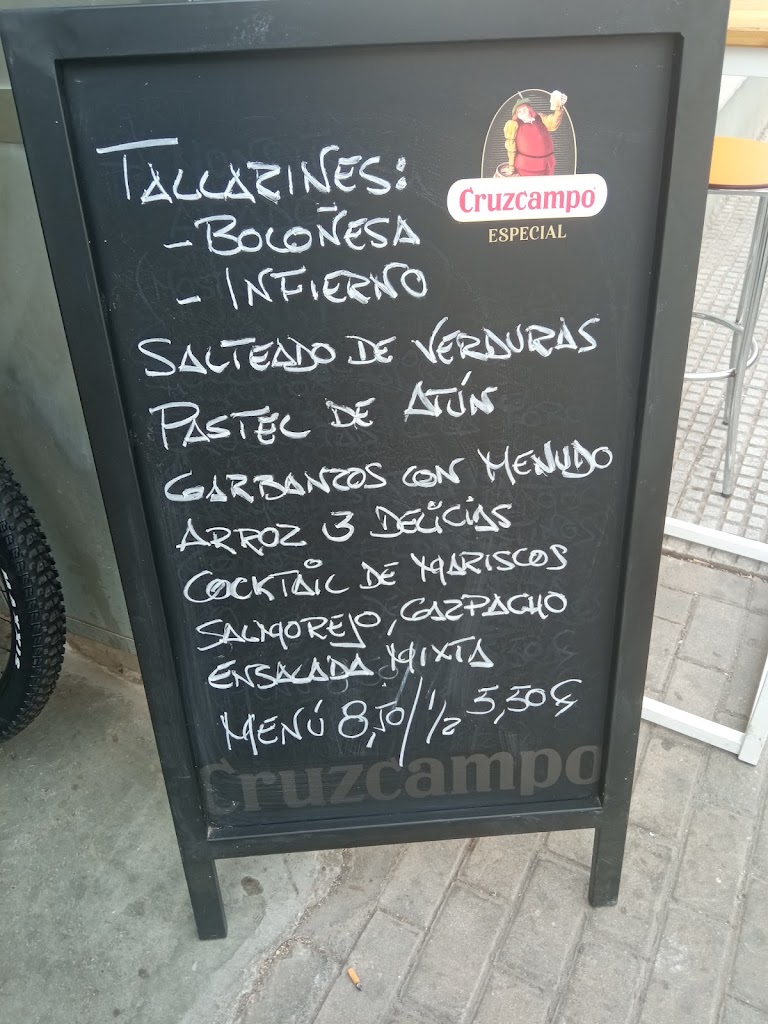 Cruzcampo
ESPECIAL
TALLARINES:
- BOLOÑESA
- INFIERNO
SALTEADO DE VERDURAS
PASTEL DE ATÚN
GARBANZOS CON MENUDO
ARROZ 3 DELICIAS
COCKTAIL DE MARISCOS
SALMOREJO, GAZPACHO
ENSALADA MIXTA
MENÚ 8,50/ 1/2 5,50 €
Cruzcampo